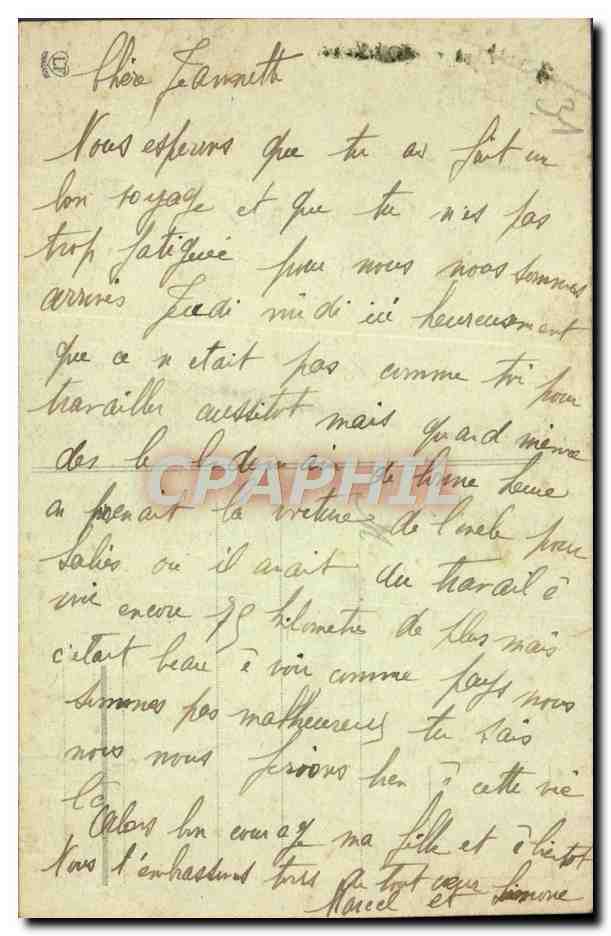 Chère Jeannette
31
Nous esperons que tu as fait un
bon voyage et que tu n'es pas
trop fatiguée pour nous nous sommes
arrivés Jeudi midi ici heureusement
que ce n etait pas comme toi pour
travailler aussitot mais quand même
des le lendemain de bonne heure
on prenait la voiture de l'oncle pour
Salies ou il avait du travail é
encore 75 kilometres de plus mais
c'etait beau é voir comme pays nous
sommes pas malheureux tu sais
nous nous ferions bien é cette vie
la
alors bon courage ma fille et é bientot
Nous t'embrassons tous de tout cœur
Marcel et Simone
CPAPHIL